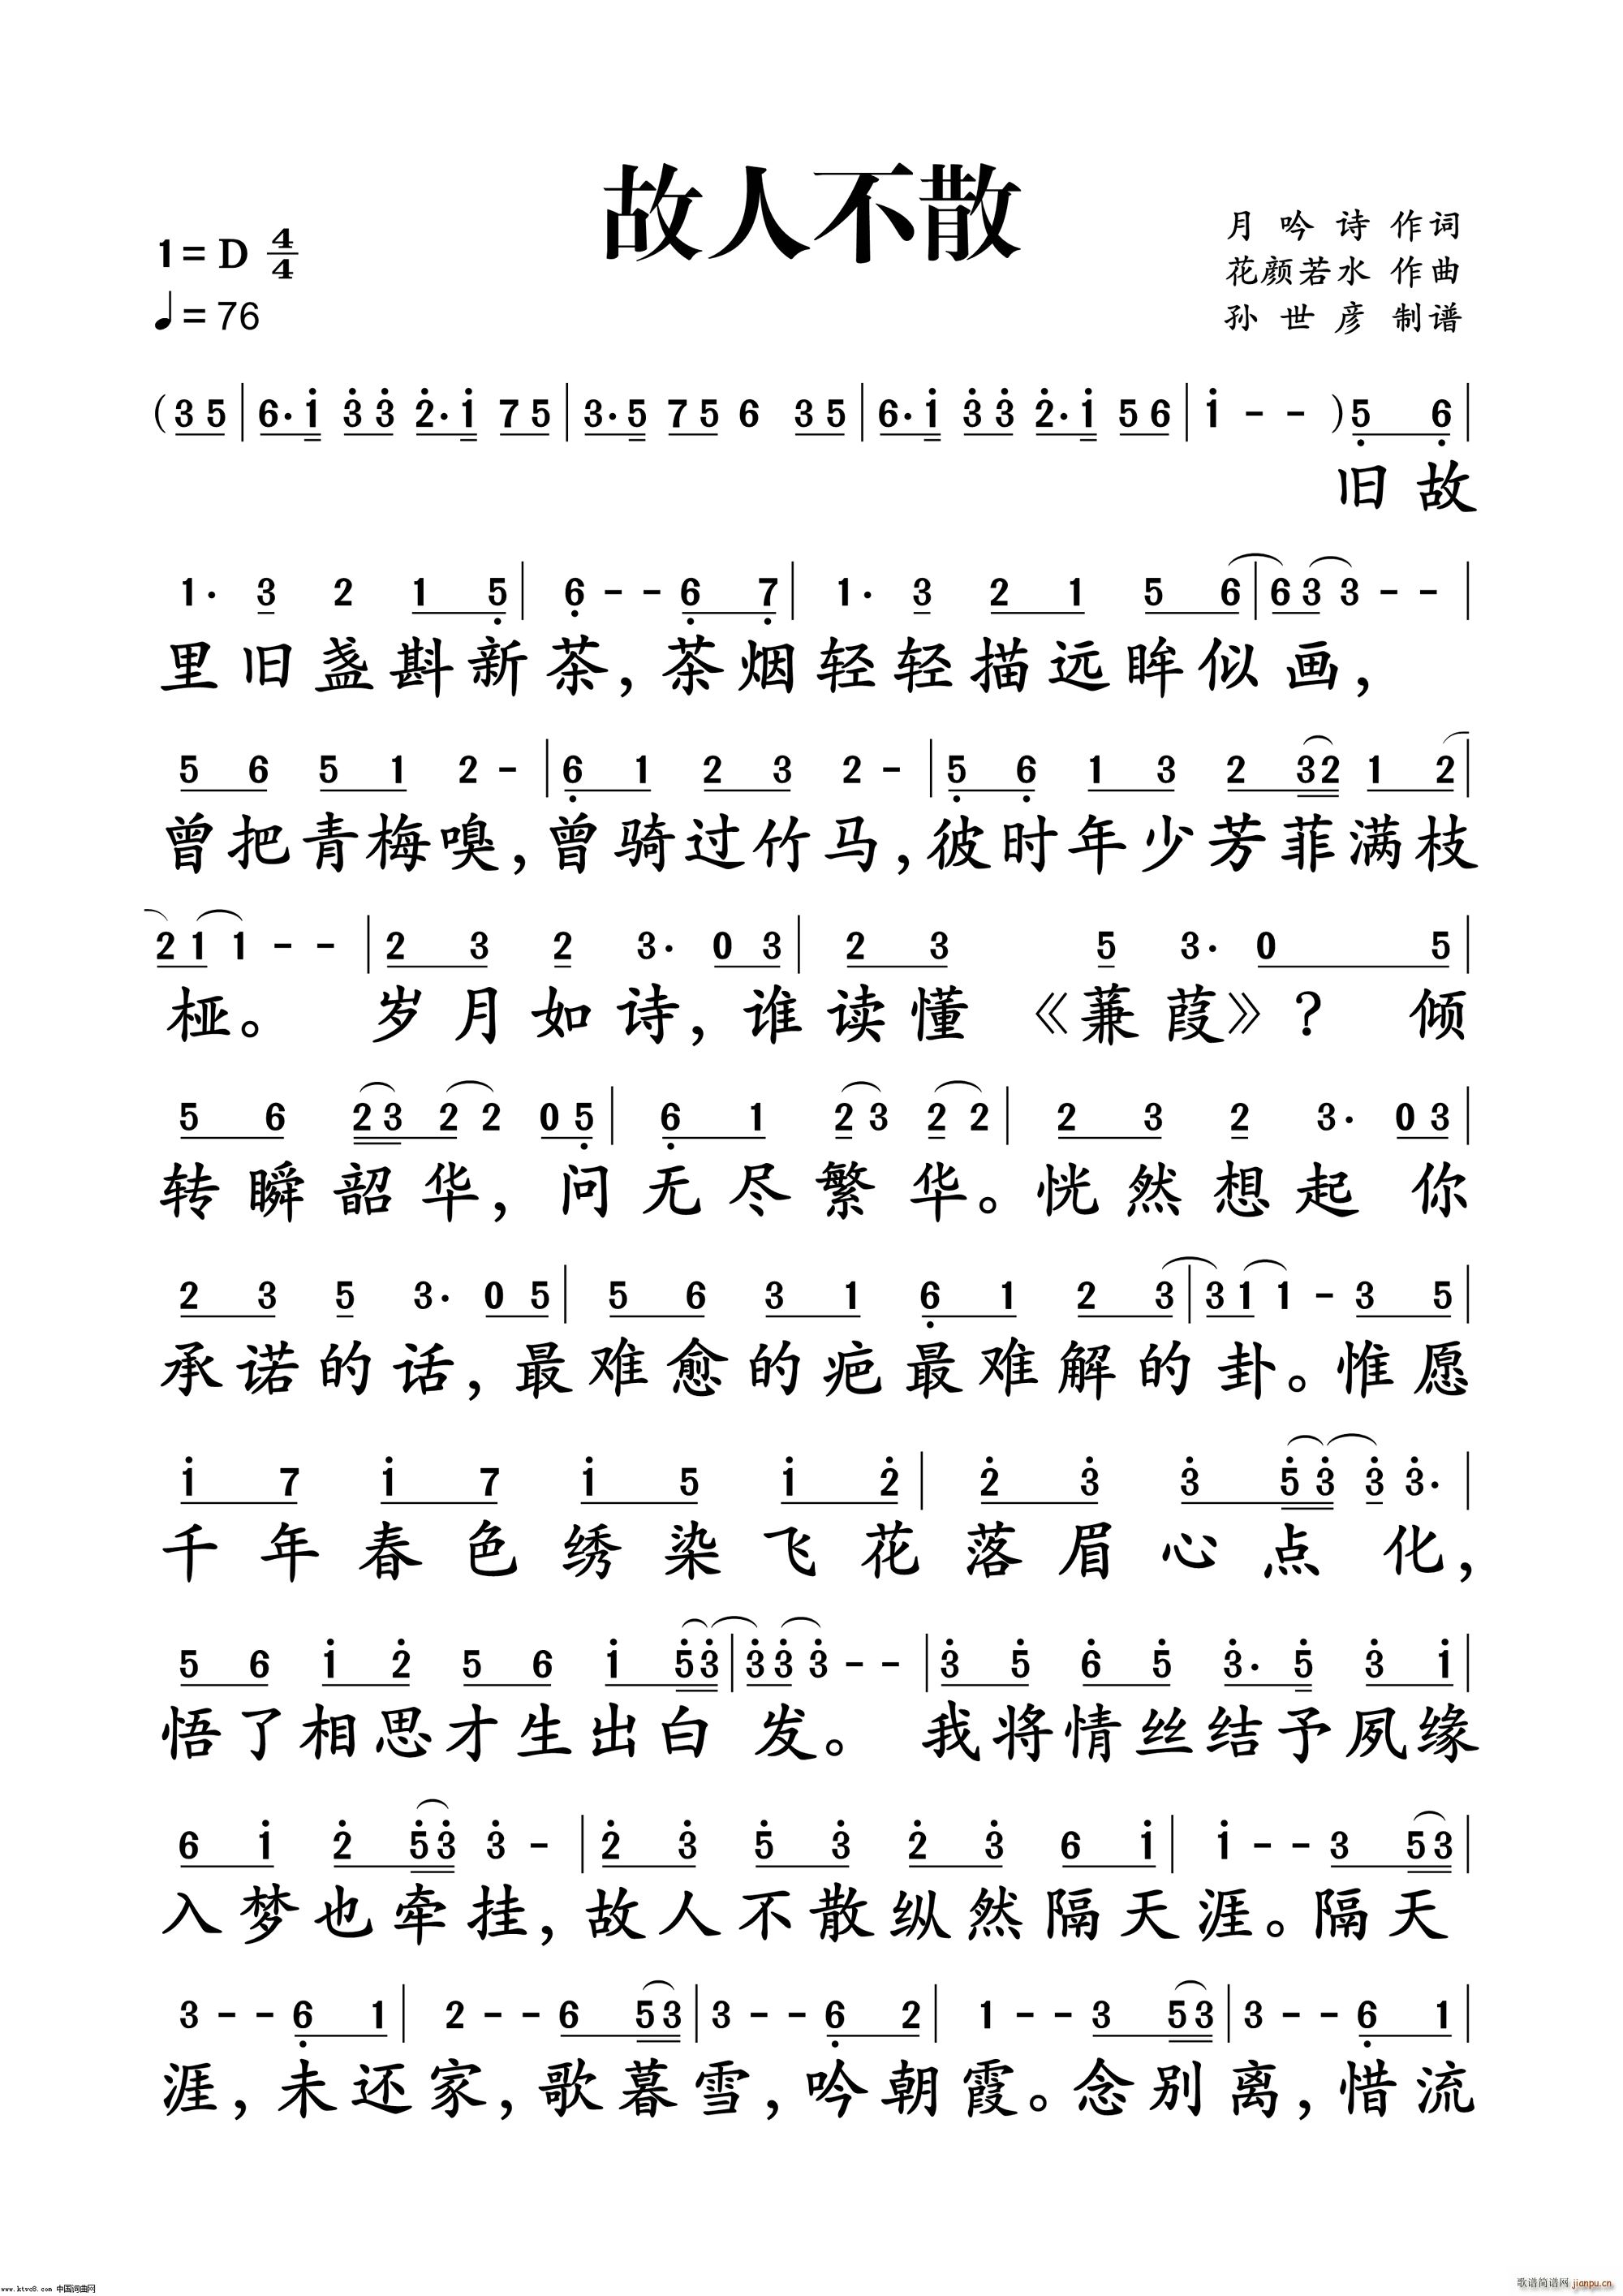 故人不散
月吟诗 作词
1=D 4/4
花颜若水 作曲
♩=76
孙世彦 制谱
(3 5 | 6· i 3 3 2· i 7 5 | 3· 5 7 5 6 3 5 | 6· i 3 3 2· i 5 6 | i - - ) 5 6 |
旧故
1· 3 2 1 5 | 6 - - 6 7 | 1· 3 2 1 5 6 | 6 3 3 - - |
里旧盏斟新茶,茶烟轻轻描远眸似画,
5 6 5 1 2 - | 6 1 2 3 2 - | 5 6 1 3 2 3 2 1 2 |
曾把青梅嗅,曾骑过竹马,彼时年少芳菲满枝
2 1 1 - - | 2 3 2 3· 0 3 | 2 3 5 3· 0 5 |
桠。 岁月如诗,谁读懂《蒹葭》? 倾
5 6 2 3 2 2 0 5 | 6 1 2 3 2 2 | 2 3 2 3· 0 3 |
转瞬韶华,问无尽繁华。恍然想起你
2 3 5 3· 0 5 | 5 6 3 1 6 1 2 3 | 3 1 1 - 3 5 |
承诺的话,最难愈的疤最难解的卦。惟愿
i 7 i 7 i 5 i 2 | 2 3 3 5 3 3 3· |
千年春色绣染飞花落眉心点化,
5 6 i 2 5 6 i 5 3 | 3 3 3 - - | 3 5 6 5 3· 5 3 i |
悟了相思才生出白发。 我将情丝结予夙缘
6 i 2 5 3 3 - | 2 3 5 3 2 3 6 i | i - - 3 5 3 |
入梦也牵挂,故人不散纵然隔天涯。隔天
3 - - 6 1 | 2 - - 6 5 3 | 3 - - 6 2 | 1 - - 3 5 3 | 3 - - 6 1 |
涯,未还家,歌暮雪,吟朝霞。念别离,惜流
www.ktvc8.com 中国词曲网
歌谱简谱网 jianpu.cn